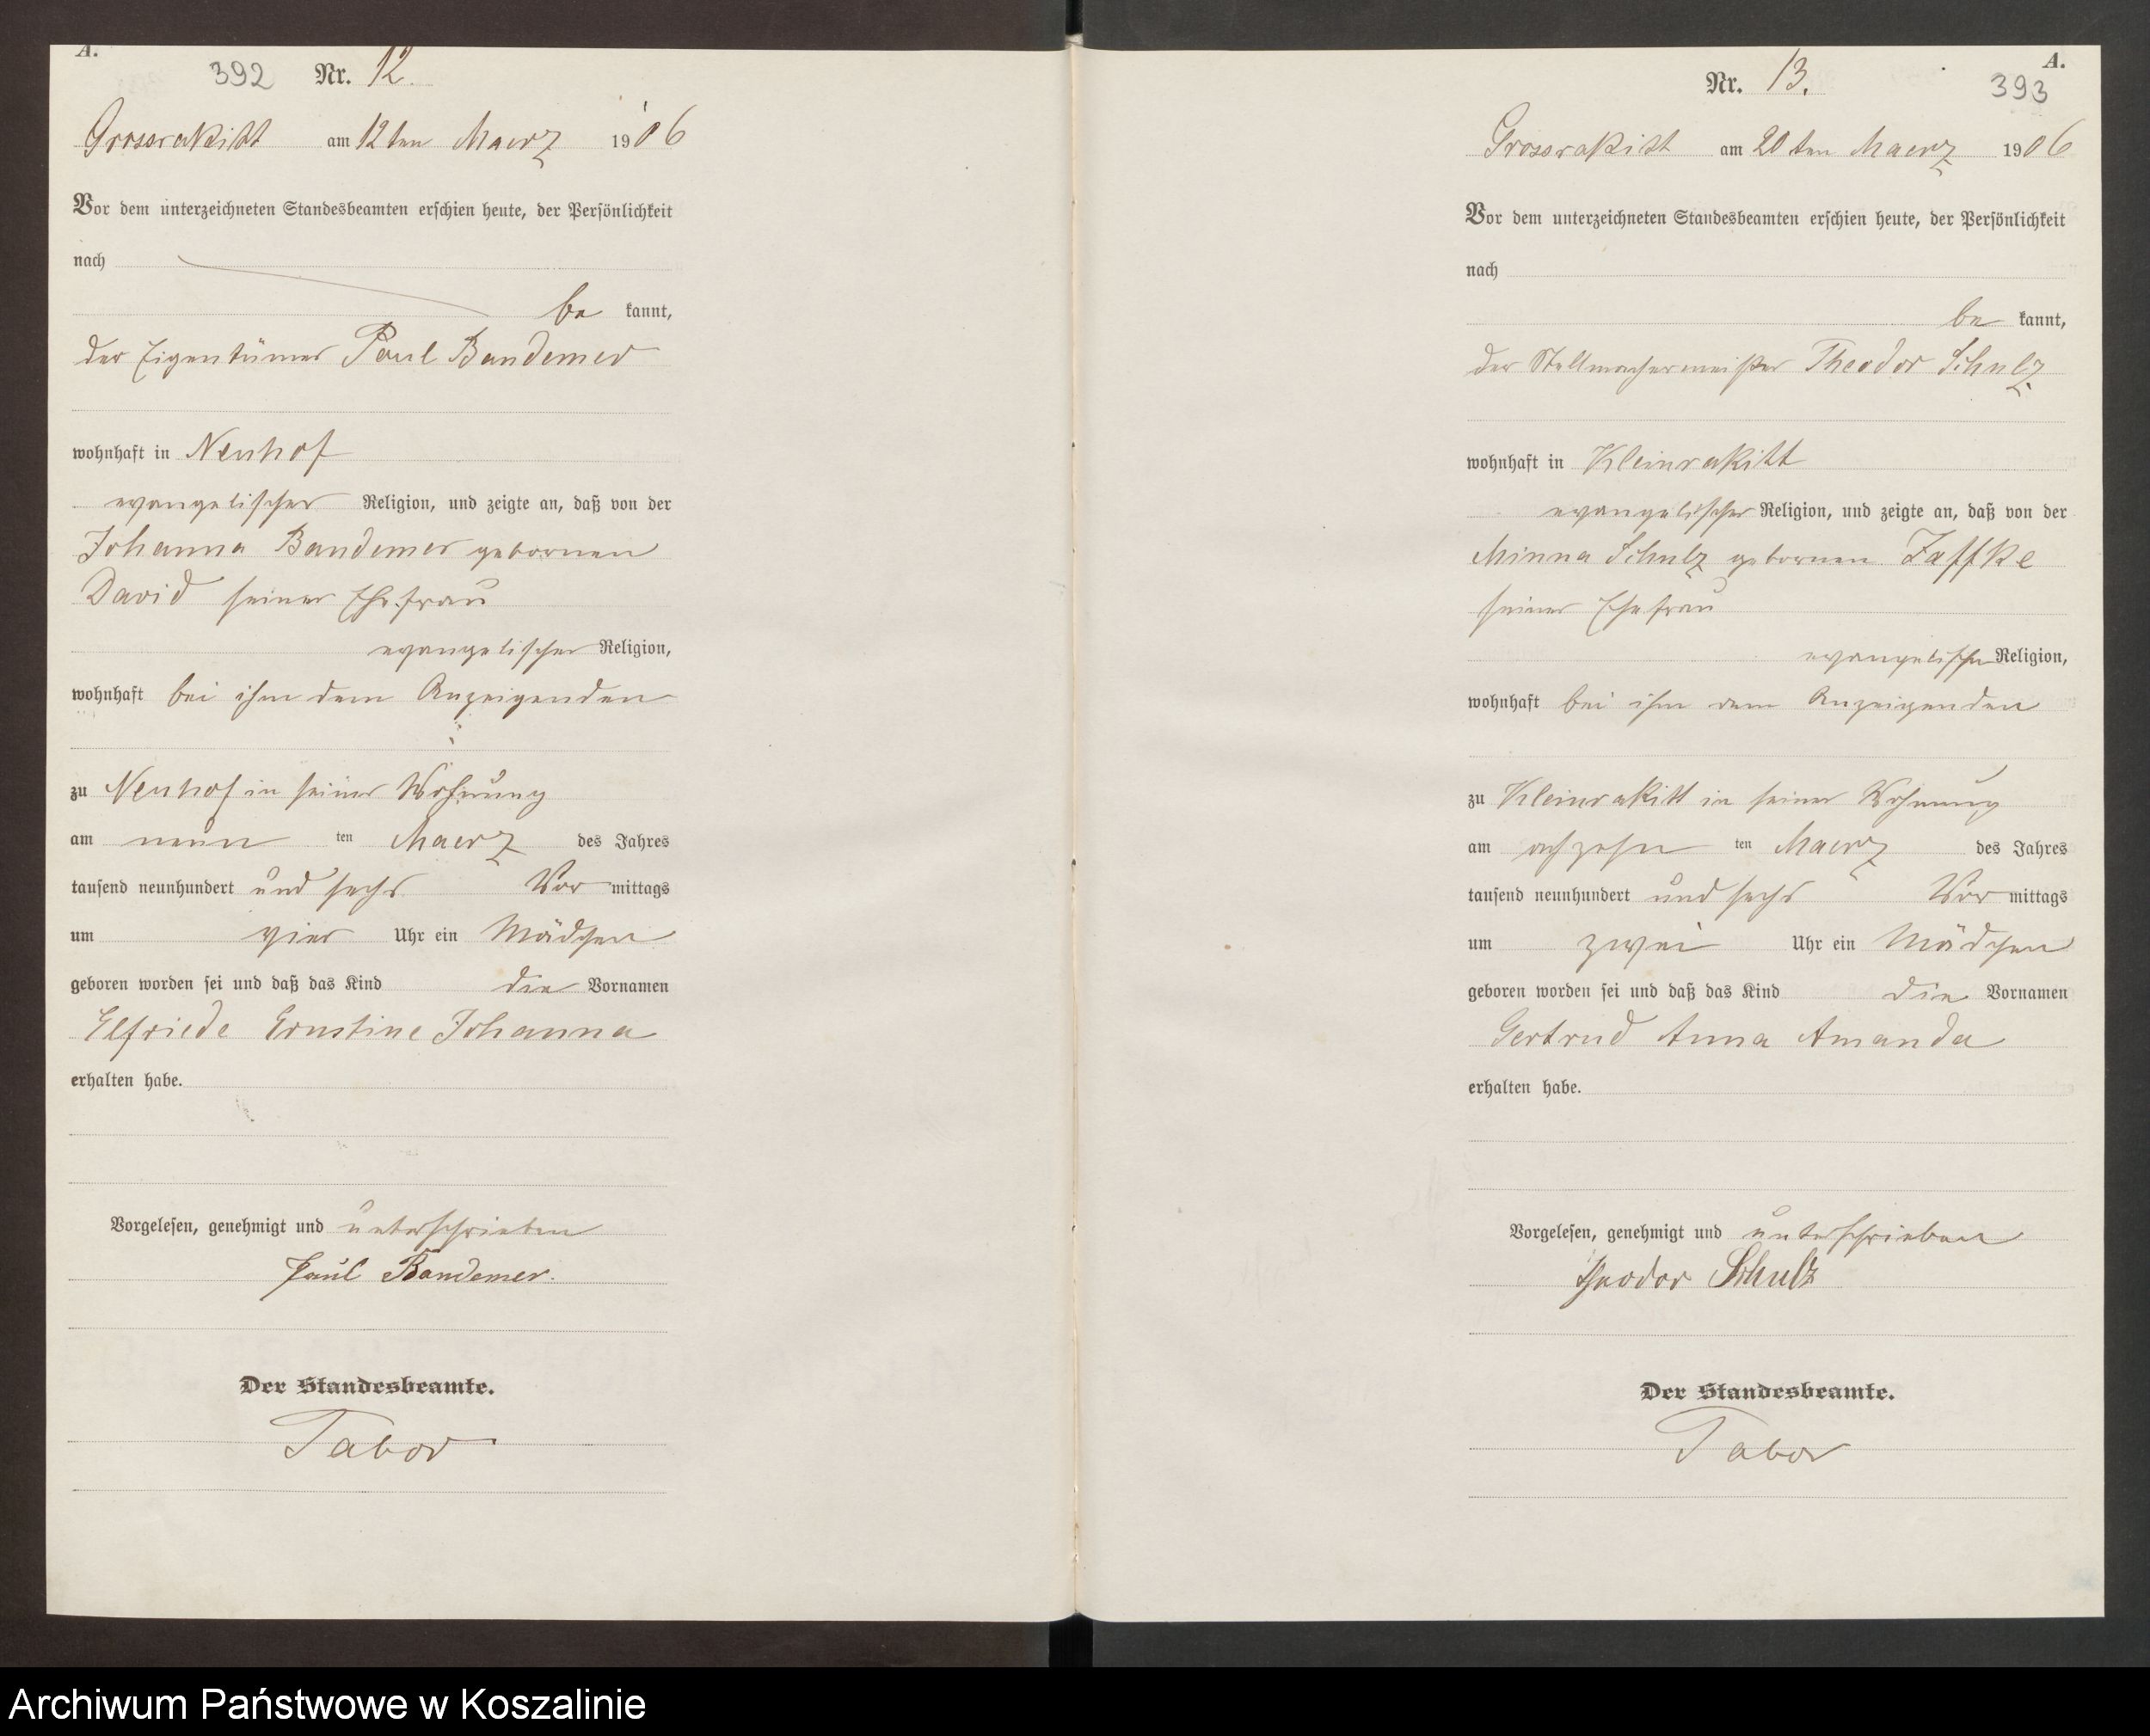 A.
392 Nr. 12.
Grossrakitt am 12 ten Maerz 1906
Vor dem unterzeichneten Standesbeamten erschien heute, der Persönlichkeit
nach
be kannt,
der Eigentümer Paul Bandemer
wohnhaft in Neuhof
evangelischer Religion, und zeigte an, daß von der
Johanna Bandemer gebornen
David seiner Ehefrau
evangelischer Religion,
wohnhaft bei ihm dem Anzeigenden
zu Neuhof in seiner Wohnung
am neun ten Maerz des Jahres
tausend neunhundert und sechs Vor mittags
um vier Uhr ein Mädchen
geboren worden sei und daß das Kind die Vornamen
Elfriede Ernstine Johanna
erhalten habe.
Vorgelesen, genehmigt und unterschrieben
Paul Bandemer.
Der Standesbeamte.
Tabor
A.
Nr. 13. 393
Grossrakitt am 20 ten Maerz 1906
Vor dem unterzeichneten Standesbeamten erschien heute, der Persönlichkeit
nach
be kannt,
der Stellmachermeister Theodor Schulz
wohnhaft in Kleinrakitt
evangelischer Religion, und zeigte an, daß von der
Minna Schulz gebornen Zaffke
seiner Ehefrau
evangelischer Religion,
wohnhaft bei ihm dem Anzeigenden
zu Kleinrakitt in seiner Wohnung
am achzehn ten Maerz des Jahres
tausend neunhundert und sechs Vor mittags
um zwei Uhr ein Mädchen
geboren worden sei und daß das Kind die Vornamen
Gertrud Anna Amanda
erhalten habe.
Vorgelesen, genehmigt und unterschrieben
Theodor Schulz
Der Standesbeamte.
Tabor
Archiwum Państwowe w Koszalinie